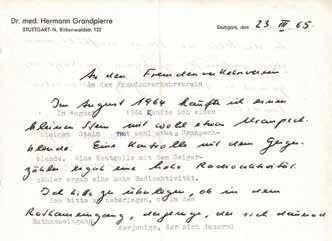 Dr. med. Hermann Grandpierre
STUTTGART-N, Birkenwaldstr. 122
Stuttgart, den 23. III 65.
An den Fremdenverkehrsverein.
An den Fremdenverkehrsverein
Im August 1964 kaufte ich einen
Im August 1964 kaufte ich einen
kleinen Stein mit wohl etwas Uranpech-
kleinen Stein mit wohl etwas Uranpech-
blende. Eine Kontrolle mit dem Geiger-
blende. Eine Kontrolle mit dem Geiger-
zähler ergab eine hohe Radioaktivität.
zähler ergab eine hohe Radioaktivität.
Ich bitte zu überlegen, ob in dem
Ich bitte zu ueberlegen, ob in dem
Rathauseingang, derjenige, der sich dauernd
Rathauseingang
derjenige, der sich dauernd